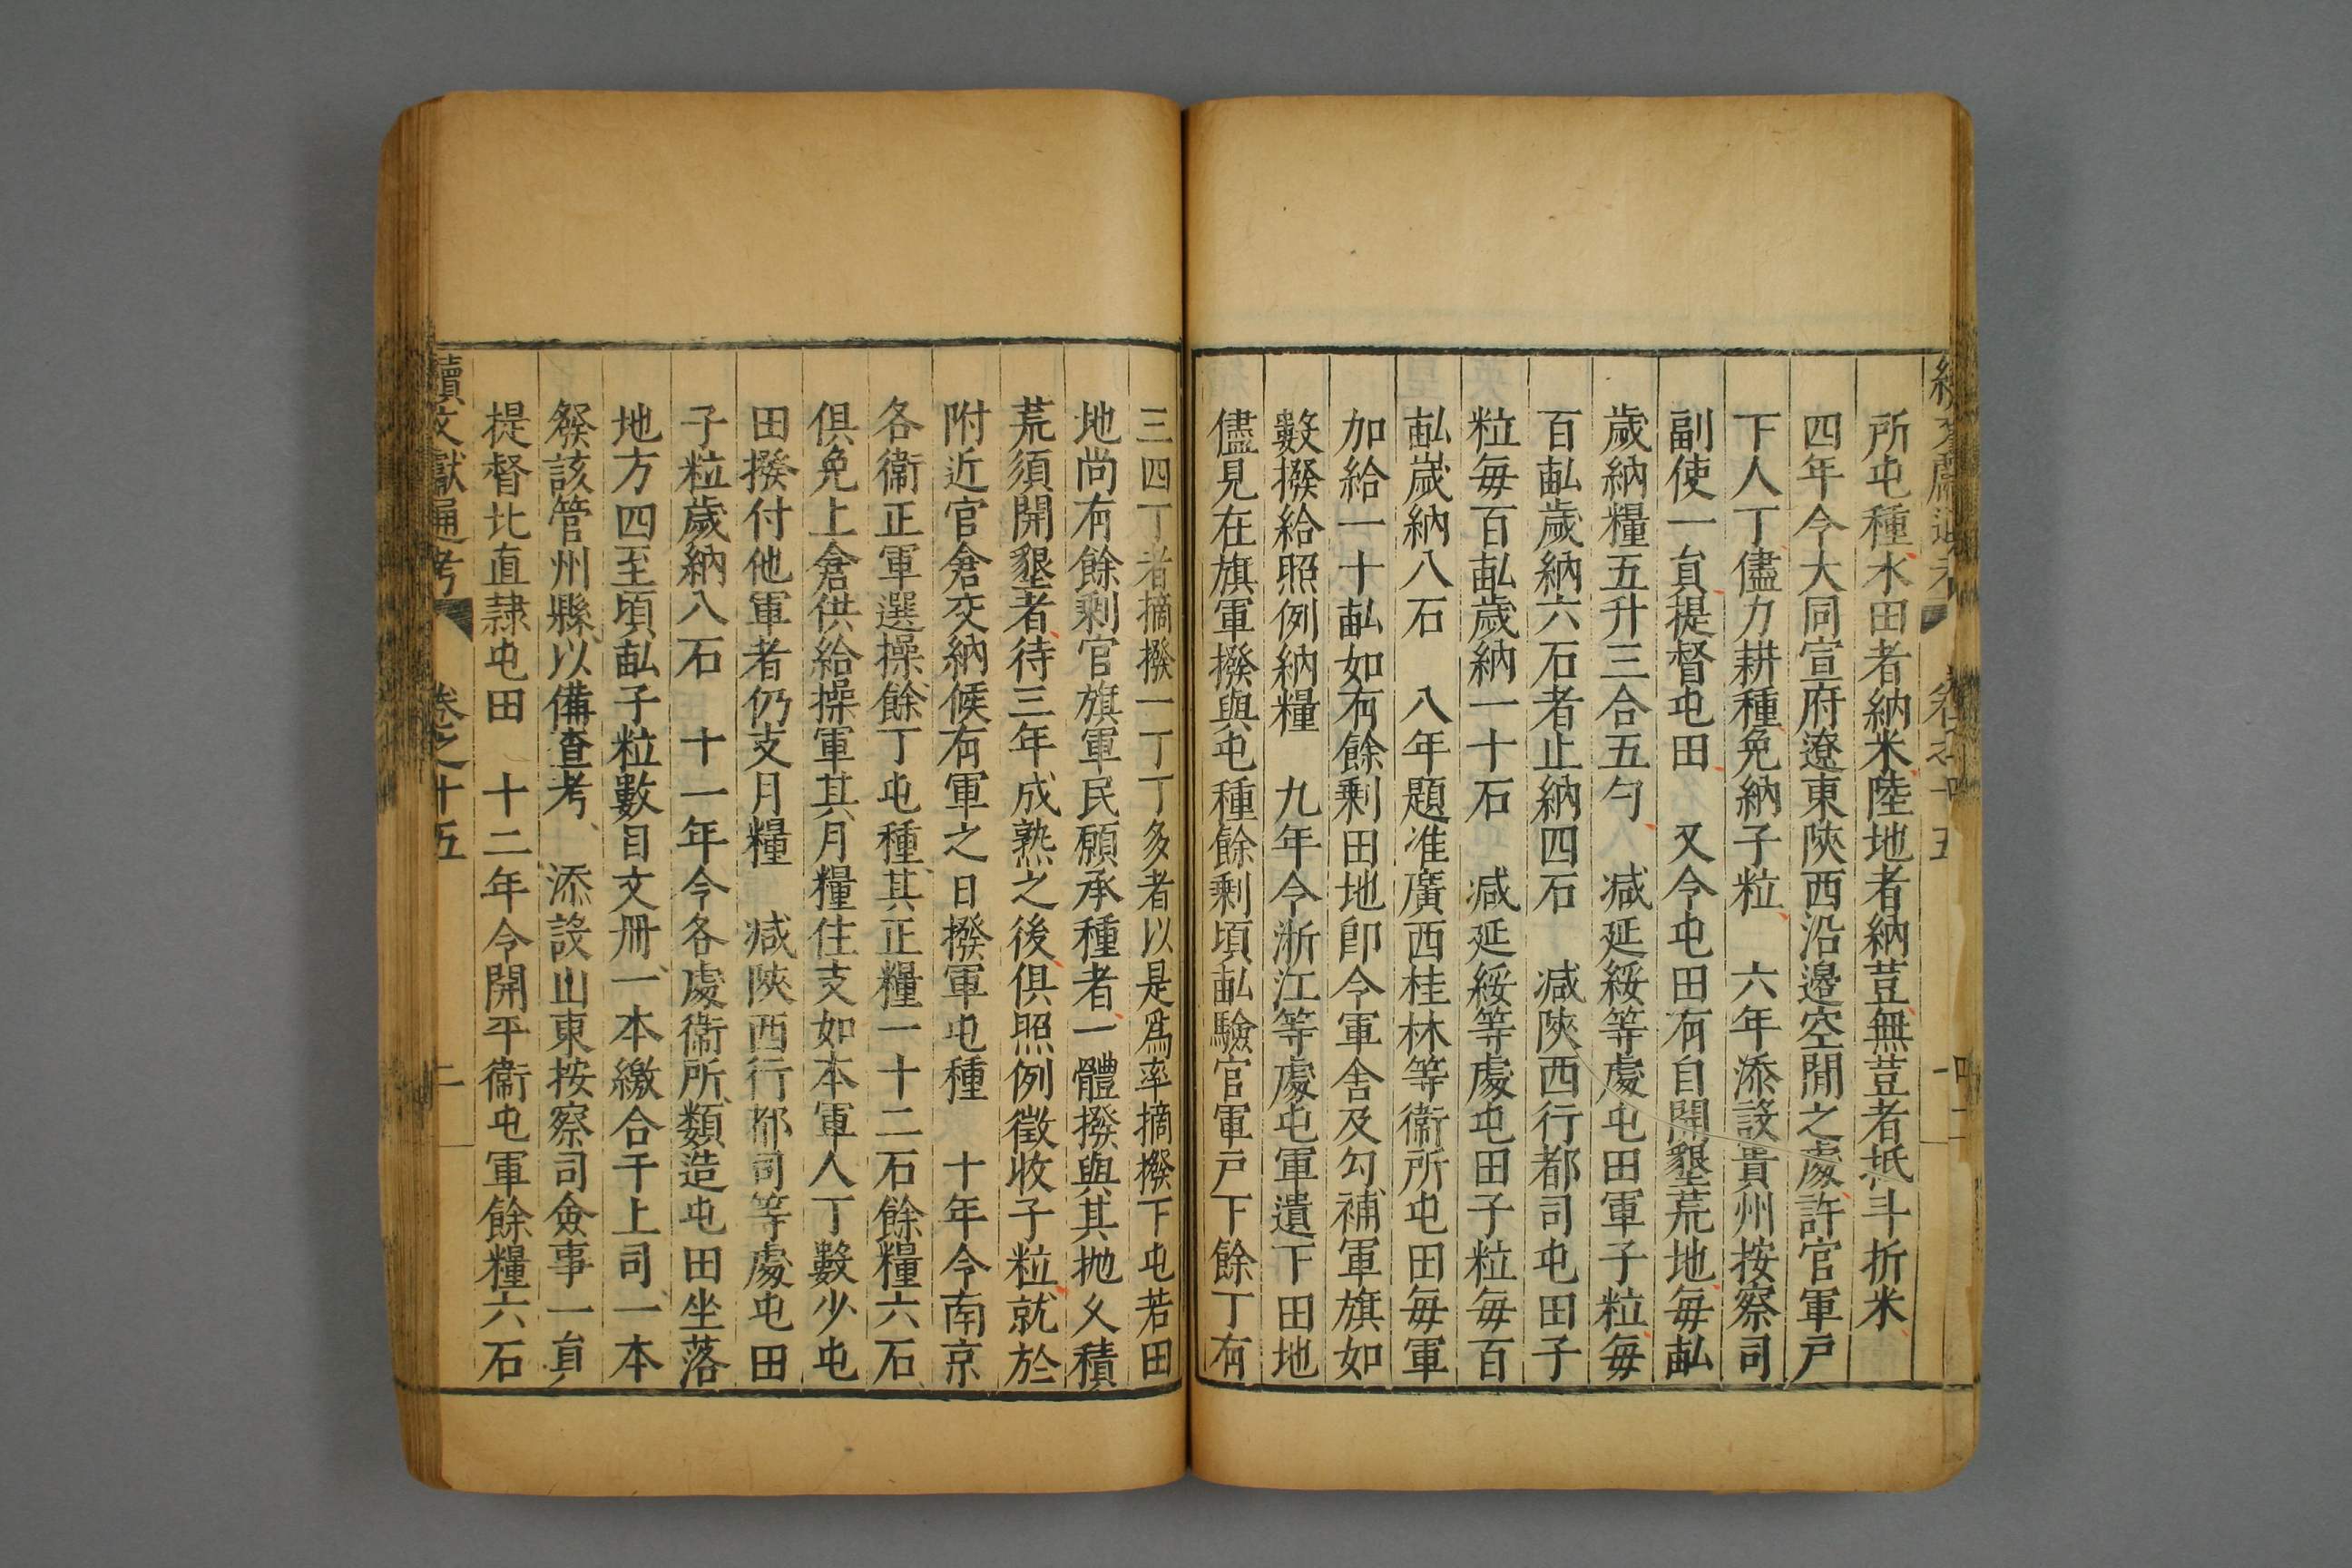 所屯種水田者納米陸地者納荳無荳者抵斗折米
四年令大同宣府遼東陝西沿邊空閒之處許官軍戶
下人丁儘力耕種免納子粒　六年添設貴州按察司
副使一員提督屯田　又令屯田有自開墾荒地每畝
歲納糧五升三合五勺　減延綏等處屯田軍子粒每
百畝歲納六石者止納四石　減陝西行都司屯田子
粒每百畝歲納一十石　減延綏等處屯田子粒每百
畝歲納八石　八年題准廣西桂林等衞所屯田每軍
加給一十畝如有餘剩田地卽令軍舍及勾補軍旗如
數撥給照例納糧　九年令浙江等處屯軍遺下田地
儘見在旗軍撥與屯種餘剩頃畝驗官軍戶下餘丁有
三四丁者摘撥一丁丁多者以是爲率摘撥下屯若田
地尚有餘剩官旗軍民願承種者一體撥與其抛久積
荒須開墾者待三年成熟之後俱照例徵收子粒就於
附近官倉交納候有軍之日撥軍屯種　十年令南京
各衞正軍選操餘丁屯種其正糧一十二石餘糧六石
俱免上倉供給操軍其月糧住支如本軍人丁數少屯
田撥付他軍者仍支月糧　減陝西行都司等處屯田
子粒歲納八石　十一年令各處衞所類造屯田坐落
地方四至頃畝子粒數目文冊一本繳合干上司一本
發該管州縣以備查考　添設山東按察司僉事一員
提督北直隸屯田　十二年令開平衞屯軍餘糧六石
續文獻通考　卷之十五